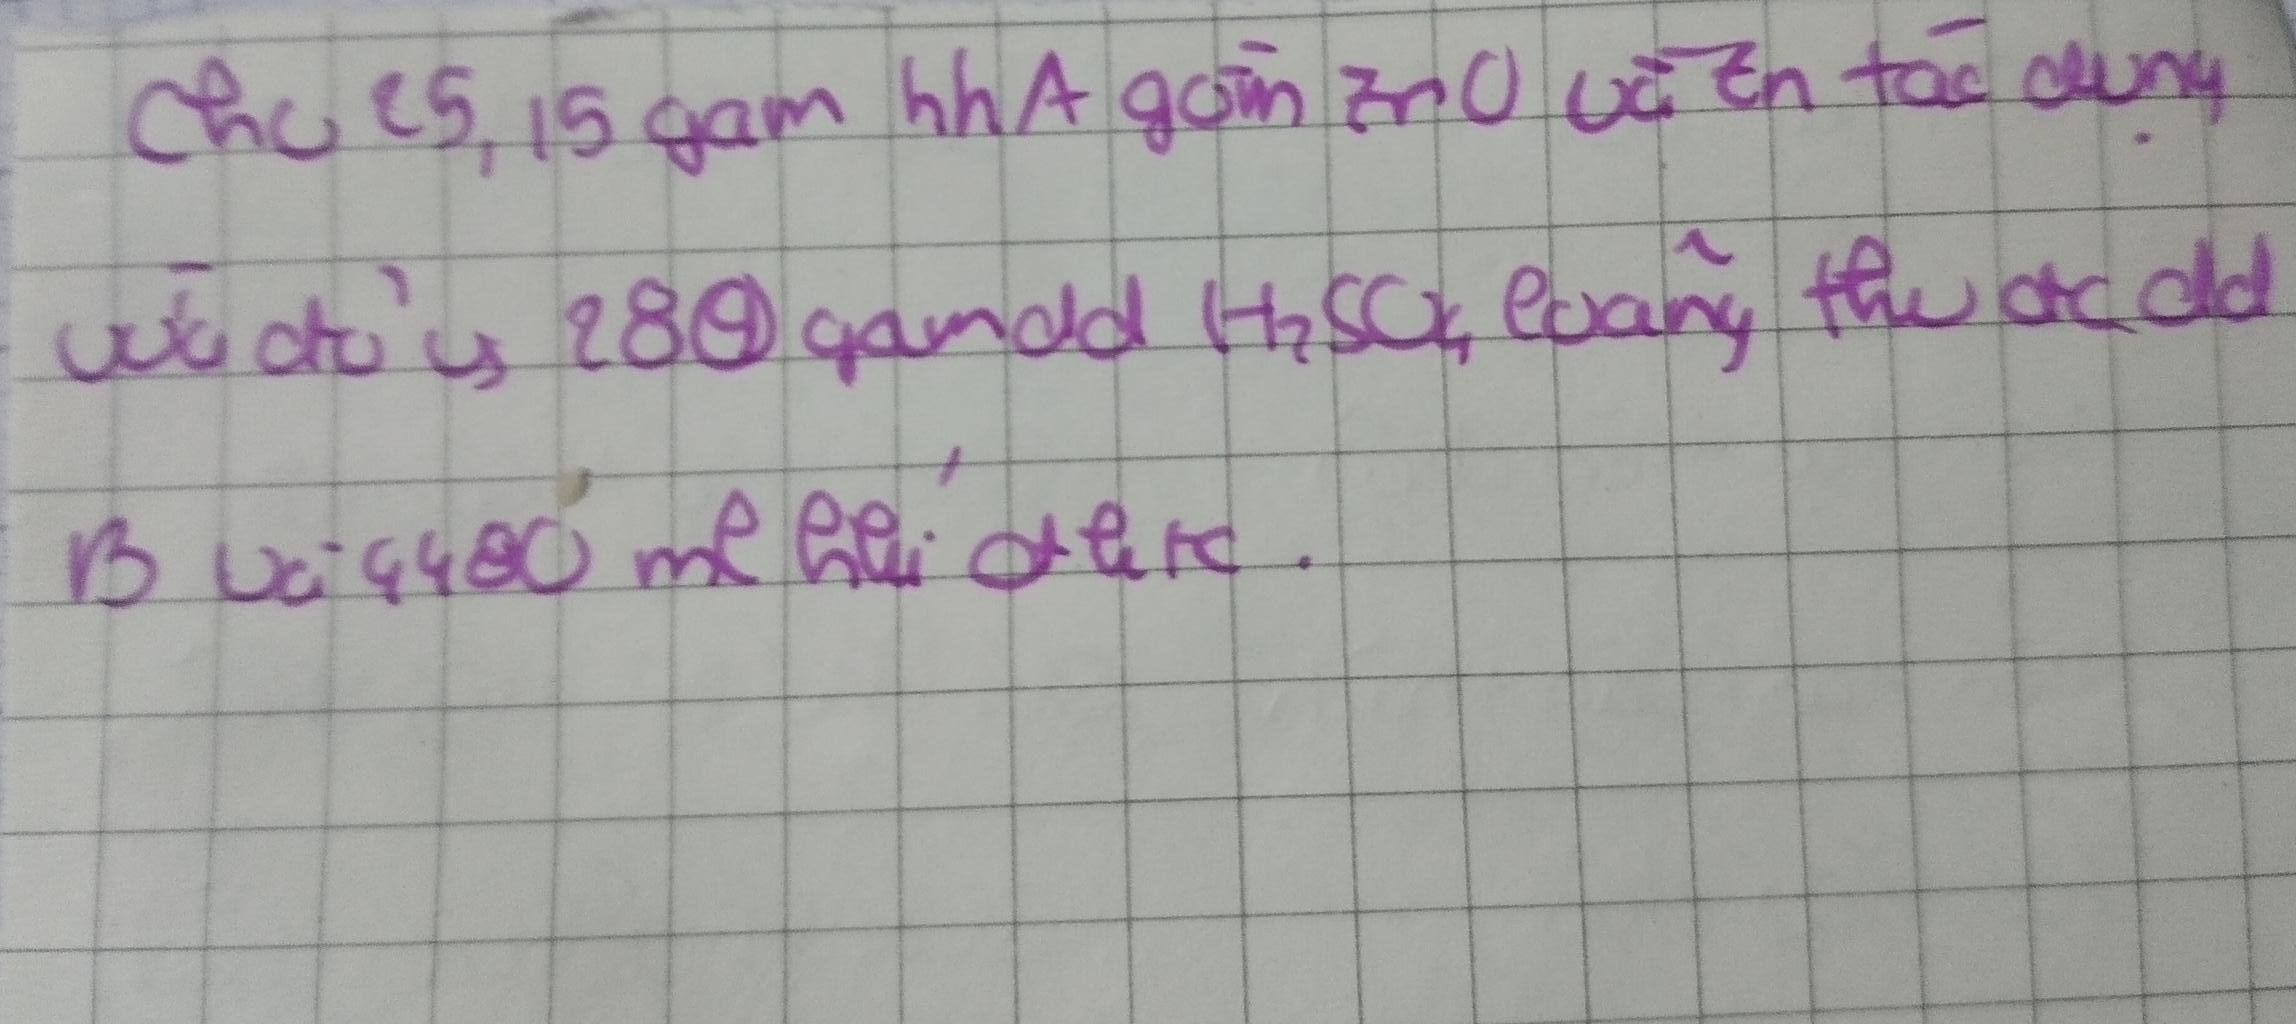 Cho 25,15 gam hh A gồm ZnO và Zn tác dụng
với đủ 280 gam dd H₂SO₄ loãng thu đc dd
B và 4480 ml khí ở đktc.